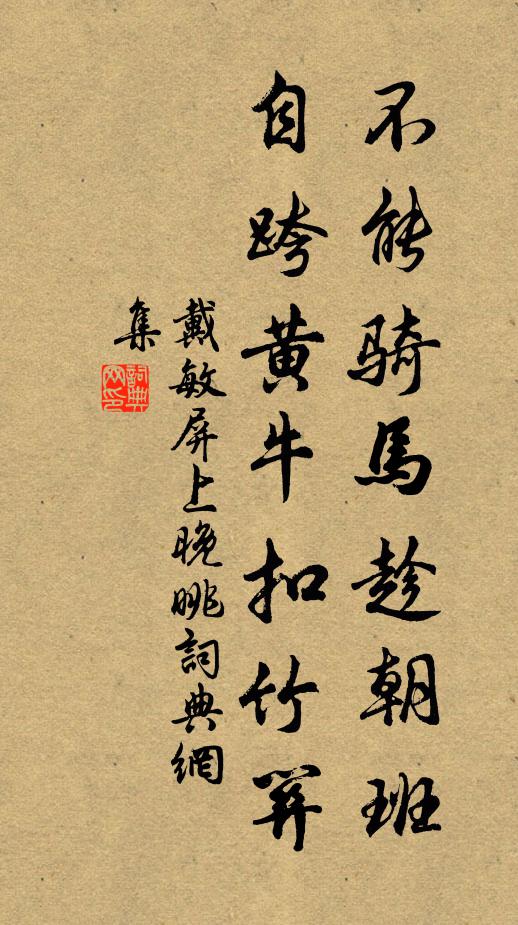 不能騎馬趁朝班
自跨黃牛扣竹關
戴敏屏上晚眺詞典網
集
詞典
网印